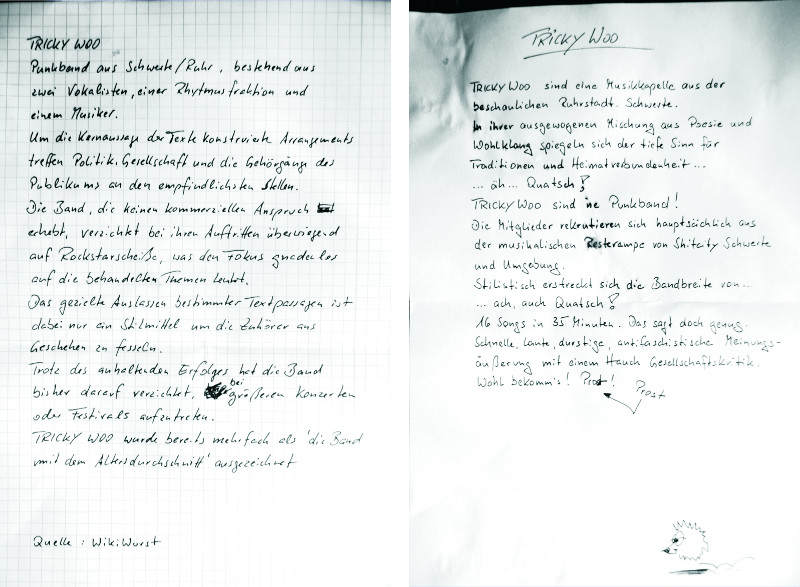 TRICKY WOO
Punkband aus Schwerte/Ruhr, bestehend aus
zwei Vokalisten, einer Rhytmusfraktion und
einem Musiker.
Um die Kernaussage der Texte konstruierte Arrangements
treffen Politik, Gesellschaft und die Gehörgänge des
Publikums an den empfindlichsten Stellen.
Die Band, die keinen kommerziellen Anspruch
erhebt, verzichtet bei ihren Auftritten überwiegend
auf Rockstarscheiße, was den Fokus gnadenlos
auf die behandelten Themen lenkt.
Das gezielte Auslassen bestimmter Textpassagen ist
dabei nur ein Stilmittel um die Zuhörer ans
Geschehen zu fesseln.
Trotz des anhaltenden Erfolges hat die Band
bisher darauf verzichtet, bei größeren Konzerten
oder Festivals aufzutreten.
TRICKY WOO wurde bereits mehrfach als 'die Band
mit dem Altersdurchschnitt' ausgezeichnet
Quelle : WikiWurst
TRICKY WOO
TRICKY WOO sind eine Musikkapelle aus der
beschaulichen Ruhrstadt Schwerte.
In ihrer ausgewogenen Mischung aus Poesie und
Wohlklang spiegeln sich der tiefe Sinn für
Traditionen und Heimatverbundenheit ...
... äh ... Quatsch!
TRICKY WOO sind ine Punkband!
Die Mitglieder rekrutieren sich hauptsächlich aus
der musikalischen Resterampe von Shitcity Schwerte
und Umgebung.
Stilistisch erstreckt sich die Bandbreite von ...
... ach, auch Quatsch!
16 Songs in 35 Minuten. Das sagt doch genug.
Schnelle, laute, durstige, antifaschistische Meinungs-
äußerung mit einem Hauch Gesellschaftskritik.
Wohl bekomm's! Prost!
Prost